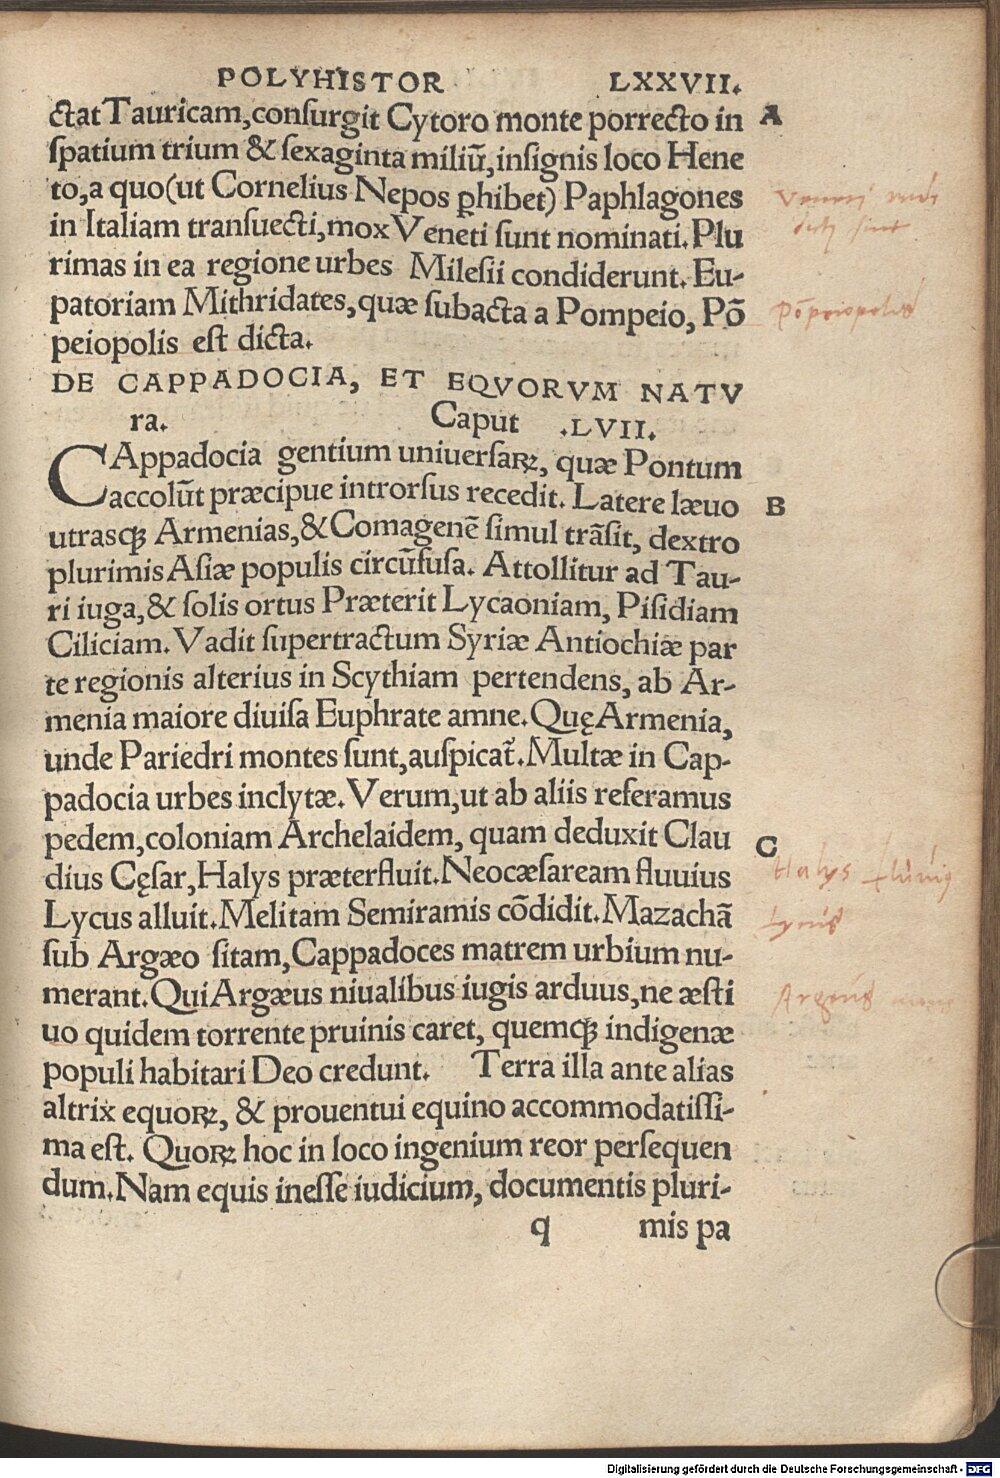 POLYHISTOR LXXVII.
ctat Tauricam, conſurgit Cytoro monte porrecto in A
ſpatium trium & ſexaginta miliũ, inſignis loco Hene
to, a quo (ut Cornelius Nepos ꝑhibet) Paphlagones
in Italiam tranſuecti, mox Veneti ſunt nominati. Plu
rimas in ea regione urbes Mileſii condiderunt. Eu-
patoriam Mithridates, quæ ſubacta a Pompeio, Põ
peiopolis eſt dicta.
Põpeiopolis
DE CAPPADOCIA, ET EQVORVM NATV
ra. Caput .LVII.
CAppadocia gentium uniuerſaꝝ, quæ Pontum
accolũt præcipue introrſus recedit. Latere læuo B
utrasꝗ Armenias, & Comagenẽ ſimul trãſit, dextro
plurimis Aſiæ populis circũfuſa. Attollitur ad Tau-
ri iuga, & ſolis ortus Præterit Lycaoniam, Piſidiam
Ciliciam. Vadit ſupertractum Syriæ Antiochiæ par
te regionis alterius in Scythiam pertendens, ab Ar-
menia maiore diuiſa Euphrate amne. Quę Armenia,
unde Pariedri montes ſunt, auſpicat̃. Multæ in Cap-
padocia urbes inclytæ. Verum, ut ab aliis referamus
pedem, coloniam Archelaidem, quam deduxit Clau C
dius Cęſar, Halys præterfluit. Neocæſaream fluuius
Halys
Lycus alluit. Melitam Semiramis cõdidit. Mazachã
ſub Argæo ſitam, Cappadoces matrem urbium nu-
merant. Qui Argæus niualibus iugis arduus, ne æſti
Argeus mons
uo quidem torrente pruinis caret, quemꝗ indigenæ
populi habitari Deo credunt. Terra illa ante alias
altrix equoꝝ, & prouentui equino accommodatiſſi-
ma eſt. Quoꝝ hoc in loco ingenium reor perſequen
dum. Nam equis ineſſe iudicium, documentis pluri-
q mis pa
Digitalisierung gefördert durch die Deutsche Forschungsgemeinschaft - DFG